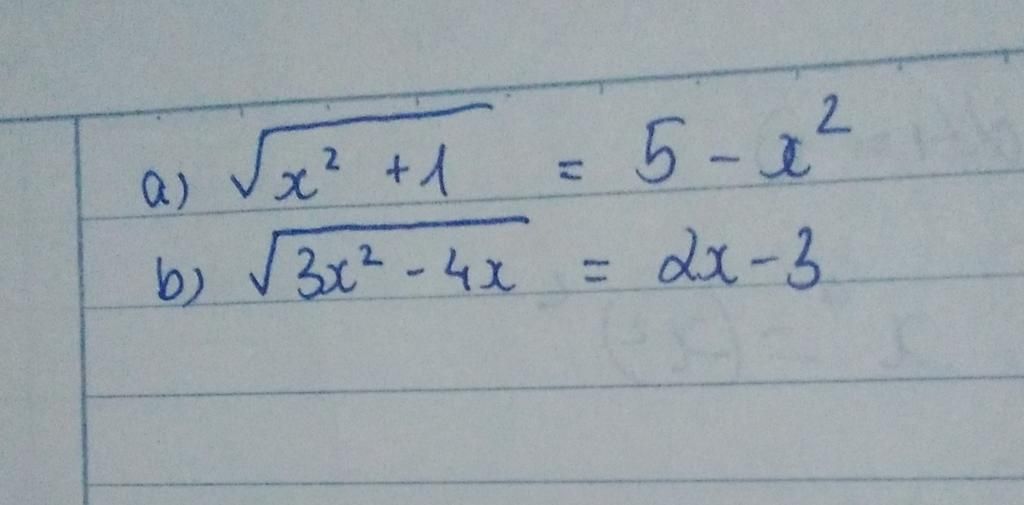 a) √(x² + 1) = 5 - x²
b) √(3x² - 4x) = 2x - 3